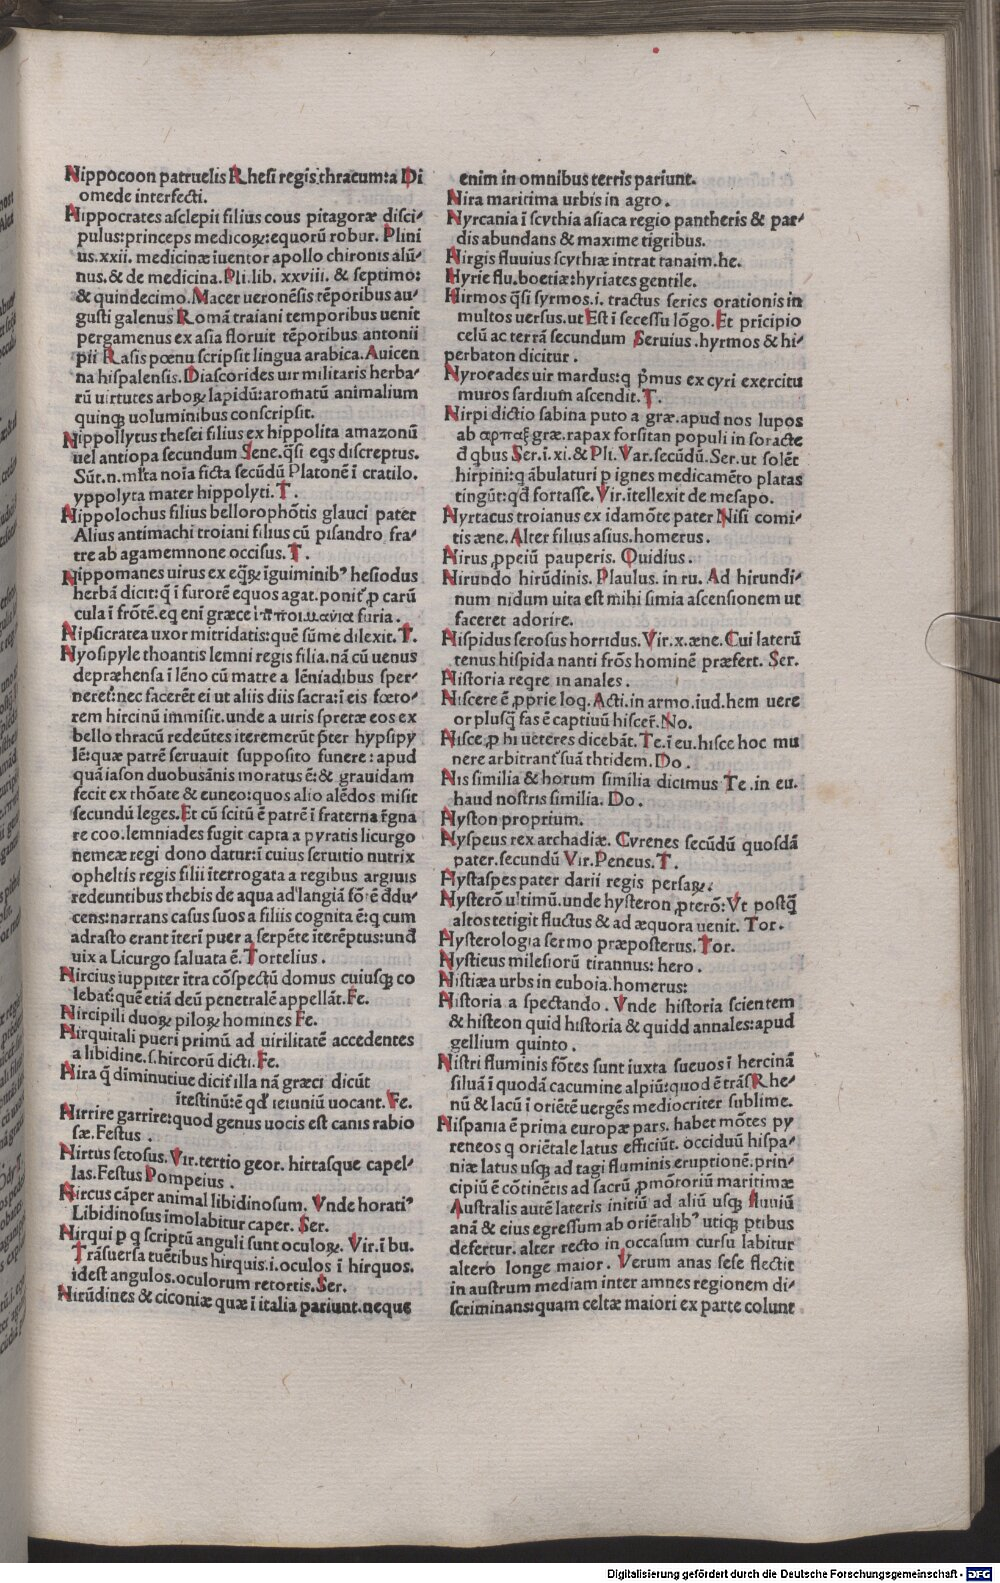 Hippocoon patruelis Rhesi regis thracum:a Di
omede interfecti.
Hippocrates asclepii filius cous pitagoræ disci⸗
pulus:princeps medicoꝝ:equorū robur. Plini
us.xxii. medicinæ iuentor apollo chironis alū⸗
nus.& de medicina.Pli.lib. xxviii. & septimo:
& quindecimo.Macer ueronēsis tēporibus au⸗
gusti galenus Romā traiani temporibus uenit
pergamenus ex asia floruit tēporibus antonii
pii Rasis pœnu scripsit lingua arabica.Auicen
na hispalensis.Diascorides uir militaris herba⸗
rū uirtutes arboꝝ lapidū:aromatū animalium
quinqꝫ uoluminibus conscripsit.
Hippollytus thesei filius ex hippolita amazonū
uel antiopa secundum Sene.q̄si eqs discreptus.
Sūt.n.mlta noīa ficta secūdū Platonē ī cratilo.
yppolyta mater hippolyti.T.
Hippolochus filius bellorophōtis glauci pater
Alius antimachi troiani filius cū pisandro fra⸗
tre ab agamemnone occisus. T.
Hippomanes uirus ex eq̄ꝝ īguiminibꝰ hesiodus
herbā dicit:q̄ ī furorē equos agat.ponit ꝓ carū
cula ī frōtē.eq enī græce ἱππομανία furia.
Hipsicratea uxor mitridatis:quē sūme dilexit.T.
Hyosipyle thoantis lemni regis filia.nā cū uenus
depræhensa ī lēno cū matre a lēniadibus sper⸗
neret:nec facerēt ei ut aliis diis sacra:ī eis fœto⸗
rem hircinū immisit.unde a uiris spretæ eos ex
bello thracū redeūtes iteremerūt p̄ter hypsipy
lē:quæ patrē seruauit supposito funere:apud
quā iason duobusānis moratus ē:& grauidam
fecit ex thōate & euneo:quos alio alēdos misit
secundū leges.Et cū scitū ē patrē ī fraterna r̄gna
re coo.lemniades fugit capta a pyratis licurgo
nemeæ regi dono datur:ī cuius seruitio nutrix
opheltis regis filii īterrogata a regibus argiuis
redeuntibus thebis de aqua ad langiā fōtē d̄du⸗
cens:narrans casus suos a filiis cognita ē:q cum
adrasto erant īterī puer a serpēte īterēptus:und̄
uix a Licurgo saluata ē.Tortelius.
Hircius iuppiter ītra cōspectū domus cuiusqꝫ co
lebat:quē etiā deū penetralē appellāt.Fe.
Hircipili duoꝝ piloꝝ homines Fe.
Hirquitali pueri primū ad uirilitatē accedentes
a libidine.s.hircorū dicti.Fe.
Hira q̄ dīminutiue dicit illa nā græci dicūt
ītestinū:ē qd̄ ieiuniū uocant.Fe.
Hirrire garrire:quod genus uocis est canis rabio
sæ.Festus.
Hirtus setosus.Vir.tertio geor. hirtasque capel⸗
las.Festus Pompeius.
Hircus cāper animal libidinosum. Vnde horatiꝰ
Libidinosus imolabitur caper. Ser.
Hirqui p q scriptū anguli sunt oculoꝝ. Vir.ī bu.
Trāsuersa tuētibus hirquis.i.oculos ī hirquos.
idest angulos.oculorum retortis.Ser.
Hirūdines & ciconiæ quæ ī italia pariunt.neque
enim in omnibus terris pariunt.
Hira maritima urbis in agro.
Hyrcania ī scythia asiaca regio pantheris & par⸗
dis abundans & maxime tigribus.
Hirgis fluuius scythiæ intrat tanaim.he.
Hyrie flu.boetiæ:hyriates gentile.
Hirmos q̄si syrmos.i. tractus series orationis in
multos uersus.ut Est ī secessu lōgo.Et prīcipio
celū ac terrā secundum Seruius.hyrmos & hi⸗
perbaton dicitur.
Hyroeades uir mardus:q p̄mus ex cyri exercitu
muros sardium ascendit.T.
Hirpi dictio sabina puto a græ.apud nos lupos
ab αρπαξ græ.rapax forsitan populi in soracte
d̄ qbus Ser.ī.xi.& Pli.Var.secūdū.Ser.ut solēt
hirpini:q ābulaturi p ignes medicamēto platas
tingūt:qd̄ fortasse.Vir.itellexit de mesapo.
Hyrtacus troianus ex idamōte pater Nisi comi⸗
tis æne.Alter filius asius.homerus.
Hirus ꝓpeiū pauperis. Ouidius.
Hirundo hirūdinis. Plautus. in ru. Ad hirundi⸗
num nidum uita est mihi simia ascensionem ut
faceret adorire.
Hispidus serosus horridus.Vir.x.æne.Cui laterū
tenus hispida nanti frōs hominē præfert. Ser.
Historia reqre in anales.
Hiscere ē ꝓprie loq.Acti.in armo.iud.hem uere
or plusq̄ fas ē captiuū hiscer̄.No.
Hisce ꝓ hi ueteres dicebāt.Te.ī eu.hisce hoc mu
nere arbitrant suā thridem.Do.
His similia & horum similia dicimus Te.in eu.
haud nostris similia. Do.
Hyston proprium.
Hyspeus rex archadiæ. Cyrenes secūdū quosdā
pater.secundū Vir.Peneus.T.
Hystaspes pater darii regis persaꝝ.
Hysterō ultimū.unde hysteron ꝓterō:Vt postq̄
altos tetigit fluctus & ad æquora uenit. Tor.
Hysterologia sermo præposterus.Tor.
Hystieus milesiorū tirannus:hero.
Histiæa urbs in euboia.homerus:
Historia a spectando. Vnde historia scientem
& histeon quid historia & quidd annales:apud
gellium quinto.
Histri fluminis fōtes sunt iuxta sueuos ī hercinā
siluā ī quodā cacumine alpiū:quod ē trās Rhe⸗
nū & lacū ī oriētē uergēs mediocriter sublime.
Hispania ē prima europæ pars. habet mōtes py
reneos q oriētale latus efficiūt. occiduū hispa⸗
niæ latus usqꝫ ad tagi fluminis eruptionē.prin⸗
cipiū ē cōtinētis ad sacrū ꝓmōtoriū maritimæ
Australis autē lateris initiū ad aliū usqꝫ fluuiū
anā & eius egressum ab oriētalibꝰ utiqꝫ ptibus
defertur. alter recto in occasum cursu labitur
altero longe maior. Verum anas sese flectit
in austrum mediam inter amnes regionem di⸗
scriminans:quam celtæ maiori ex parte colunt
Digitalisierung gefördert durch die Deutsche Forschungsgemeinschaft - DFG